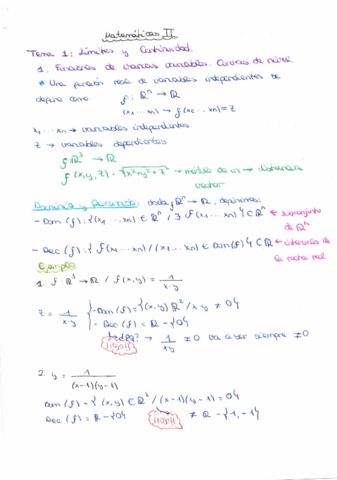 Matemáticas II
Tema 1: Límites y Continuidad.
1. Funciones de varias variables. Curvas de nivel.
* Una función real de variables independientes se
define como f: ℝⁿ → ℝ
(x₁ ... xₙ) → f(x₁ ... xₙ) = z
x₁ ... xₙ → variables independientes
z → variables dependientes
f: ℝ³ → ℝ
f(x, y, z) = √x²+y²+z² → módulo de un → distancia
vector
Dominio y Recorrido: dada f ℝⁿ → ℝ, definimos:
- Dom (f) = {(x₁ ... xₙ) ∈ ℝⁿ / ∃ f(x₁ ... xₙ)} ⊂ ℝⁿ ← subconjunto
de ℝⁿ
- Rec (f) = {f(x₁ ... xₙ) / (x₁ ... xₙ) ∈ Dom(f)} ⊂ ℝ ← intervalos de
la recta real
Ejemplo
1. f: ℝ² → ℝ / f(x,y) = 1/x·y
z = 1/x·y { - Dom (f) = {(x,y) ℝ² / x·y ≠ 0}
- Rec (f) = ℝ - {0}
↳ ¿Pq? → 1/xy ≠ 0 va a ser siempre ≠ 0
2. y = 1/(x-1)(y-1)
Dom (f) = {(x,y) ∈ ℝ² / (x-1)(y-1) = 0}
Rec (f) = ℝ - {0} ≠ ℝ - {1, -1}